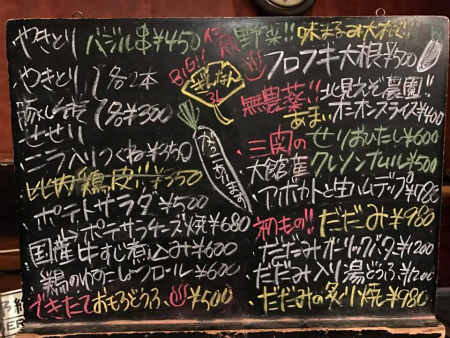 やきとり バジル串¥450
やきとり 1各2本
1各¥300
せせり
ニラ入りつくね¥350
比内鶏皮!!¥350
ポテトサラダ¥500
ポテサラチーズ焼¥680
国産牛すじ煮込み¥600
鶏のゆずこしょうロール¥600
できたておぼろどうふ♨¥500
BIG!!
ぎんなん
野菜!! 味まるみ大根!!
フロフキ大根¥500
無農薬!! 北見えぞ農園!!
あまい オニオンスライス¥400
三関の せりおひたし¥600
大館産 クレソンナムル¥500
アボカドと生ハムディップ¥780
初もの!! だだみ¥980
だだみガーリックバター¥1200
だだみ入り湯どうふ¥1200
だだみの炙り焼¥980